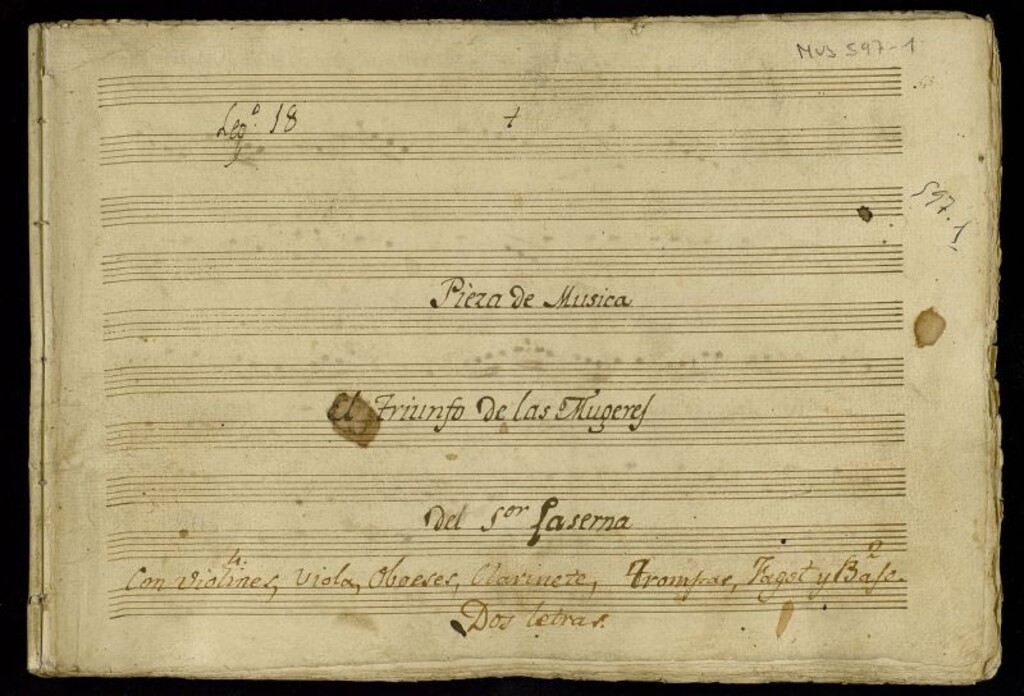 MUS 597-1
Leg.º 18
597.1
Pieza de Musica
El Triunfo de las Mugeres
del S.or Laserna
4.
2
Con violines, viola, Oboeses, Clarinete, Trompas, Fagot y Bajo.
Dos letras.